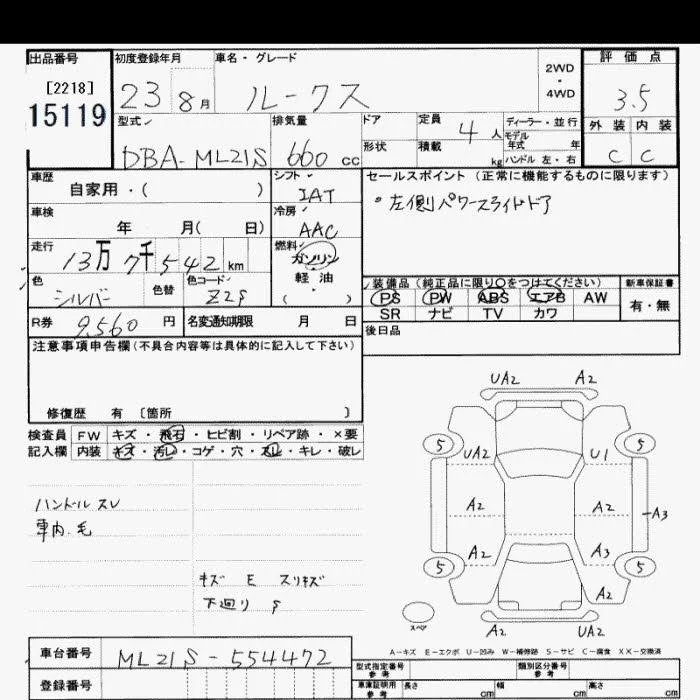 出品番号 初度登録年月 車名・グレード 評価点
[2218]
15119
23 8月 ルークス 2WD ・ 4WD 3.5
型式 排気量 ドア 定員 4人 ディーラー・並行 外装 内装
モデル
年式 年
DBA-ML21S 660 cc 形状 積載 kg ハンドル 左・右 C C
車歴 自家用・( ) シフト IAT セールスポイント (正常に機能するものに限ります)
車検 年 月( 日) 冷房 AAC ・左側パワースライドドア
走行 13万7千542km 燃料 ガソリン
軽・油
( )
色 シルバー 色替 色コード Z2S
装備品(純正品に限り○をつけてください) 新車保証書
PS PW ABS エアB AW 有・無
SR ナビ TV カワ
R券 9,560円 名変通知期限 月 日 後日品
注意事項申告欄(不具合内容等は具体的に記入して下さい)
修復歴 有 〔箇所 〕
検査員 FW キズ・飛石・ヒビ割・リペア跡・×要
記入欄 内装 キズ・汚レ・コゲ・穴・スレ・キレ・破レ
ハンドルスレ
車内毛
キズ E スリキズ
下廻り S
UA2 A2
5 UA2 U1 5
A2 A2 A3
A2 A3
5 A2 5
スペア A2 UA2
A-キズ E-エクボ U-凹み W-補修跡 S-サビ C-腐食 XX-交換済
車台番号 ML21S-554472
登録番号
型式指定番号 参考 類別区分番号 参考
車庫証明用 参考 長さ cm 幅 cm 高さ cm